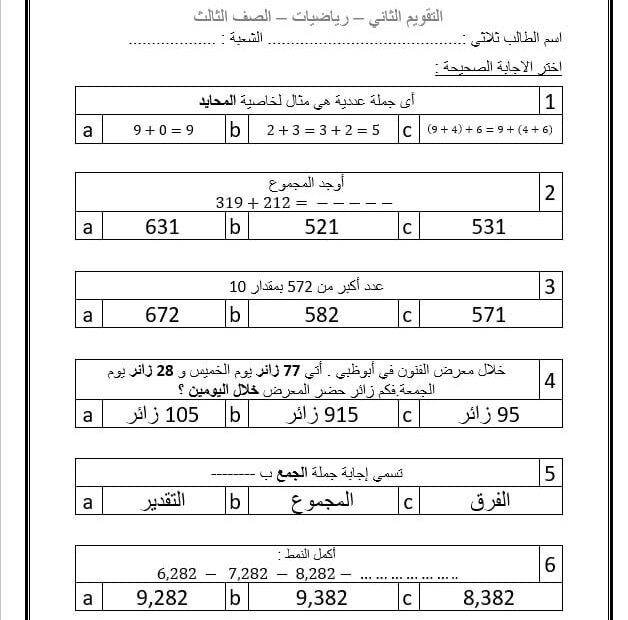 التقويم الثاني – رياضيات – الصف الثالث
اسم الطالب ثلاثي :............................................ الشعبة : ....................
اختر الاجابة الصحيحة :
1 أى جملة عددية هي مثال لخاصية المحايد
a 9 + 0 = 9 b 2 + 3 = 3 + 2 = 5 c (9 + 4) + 6 = 9 + (4 + 6)
2 أوجد المجموع
319 + 212 = − − − − −
a 631 b 521 c 531
3 عدد أكبر من 572 بمقدار 10
a 672 b 582 c 571
4 خلال معرض الفنون في أبوظبي . أتي 77 زائر يوم الخميس و 28 زائر يوم
الجمعة.فكم زائر حضر المعرض خلال اليومين ؟
a 105 زائر b 915 زائر c 95 زائر
5 تسمي إجابة جملة الجمع ب --------
a التقدير b المجموع c الفرق
6 أكمل النمط :
6,282 − 7,282 − 8,282 − ... ... ... ... ... ...
a 9,282 b 9,382 c 8,382